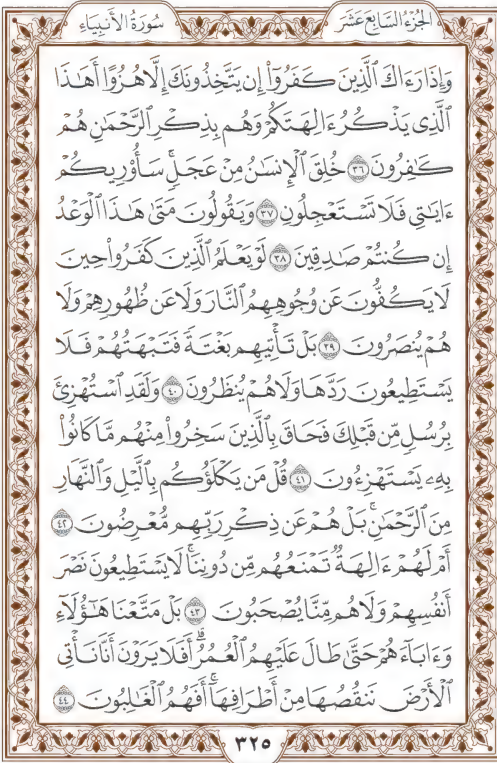 الجُزْءُ السَّابِعَ عَشَرَ سُورَةُ الأَنْبِيَاءِ
وَإِذَا رَءَاكَ ٱلَّذِينَ كَفَرُوٓاْ إِن يَتَّخِذُونَكَ إِلَّا هُزُوًا أَهَٰذَا
ٱلَّذِى يَذْكُرُ ءَالِهَتَكُمْ وَهُم بِذِكْرِ ٱلرَّحْمَٰنِ هُمْ
كَٰفِرُونَ ٣٦ خُلِقَ ٱلْإِنسَٰنُ مِنْ عَجَلٍۚ سَأُوْرِيكُمْ
ءَايَٰتِى فَلَا تَسْتَعْجِلُونِ ٣٧ وَيَقُولُونَ مَتَىٰ هَٰذَا ٱلْوَعْدُ
إِن كُنتُمْ صَٰدِقِينَ ٣٨ لَوْ يَعْلَمُ ٱلَّذِينَ كَفَرُواْ حِينَ
لَا يَكُفُّونَ عَن وُجُوهِهِمُ ٱلنَّارَ وَلَا عَن ظُهُورِهِمْ وَلَا
هُمْ يُنصَرُونَ ٣٩ بَلْ تَأْتِيهِم بَغْتَةً فَتَبْهَتُهُمْ فَلَا
يَسْتَطِيعُونَ رَدَّهَا وَلَا هُمْ يُنظَرُونَ ٤٠ وَلَقَدِ ٱسْتُهْزِئَ
بِرُسُلٍ مِّن قَبْلِكَ فَحَاقَ بِٱلَّذِينَ سَخِرُواْ مِنْهُم مَّا كَانُواْ
بِهِۦ يَسْتَهْزِءُونَ ٤١ قُلْ مَن يَكْلَؤُكُم بِٱلَّيْلِ وَٱلنَّهَارِ
مِنَ ٱلرَّحْمَٰنِۚ بَلْ هُمْ عَن ذِكْرِ رَبِّهِم مُّعْرِضُونَ ٤٢
أَمْ لَهُمْ ءَالِهَةٌ تَمْنَعُهُم مِّن دُونِنَاۚ لَا يَسْتَطِيعُونَ نَصْرَ
أَنفُسِهِمْ وَلَا هُم مِّنَّا يُصْحَبُونَ ٤٣ بَلْ مَتَّعْنَا هَٰٓؤُلَآءِ
وَءَابَآءَهُمْ حَتَّىٰ طَالَ عَلَيْهِمُ ٱلْعُمُرُۗ أَفَلَا يَرَوْنَ أَنَّا نَأْتِى
ٱلْأَرْضَ نَنقُصُهَا مِنْ أَطْرَافِهَآۚ أَفَهُمُ ٱلْغَٰلِبُونَ ٤٤
٣٢٥